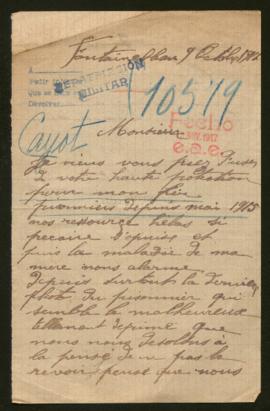 Fontainebleau 9 Octobre
A
Petit
Que se
Dévoirer
MILITAR
10519
Fecho
1917
e.a.e.
Cayot
Monsieur
Je viens vous priez
de votre haute
pour mon
prisonnier depuis mai 1915
nos ressource hélas si
précaire Depuis et
puis la maladie de ma
mere nous alarme
depuis surtout la dernière
photo du prisonnier qui
semble le malheureux
tellement déprimé que
nous nous désolons à
la pensé de ne pas le
revoir pensé que nous